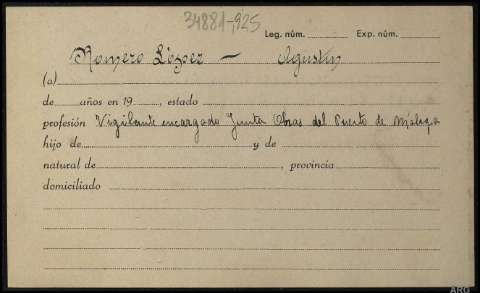 34881-925
Leg. núm. Exp. núm.
Romero López — Agustín
(a)
de años en 19, estado
profesión Vigilante encargado Junta Obras del Puerto de Málaga
hijo de y de
natural de , provincia
domiciliado
ARG